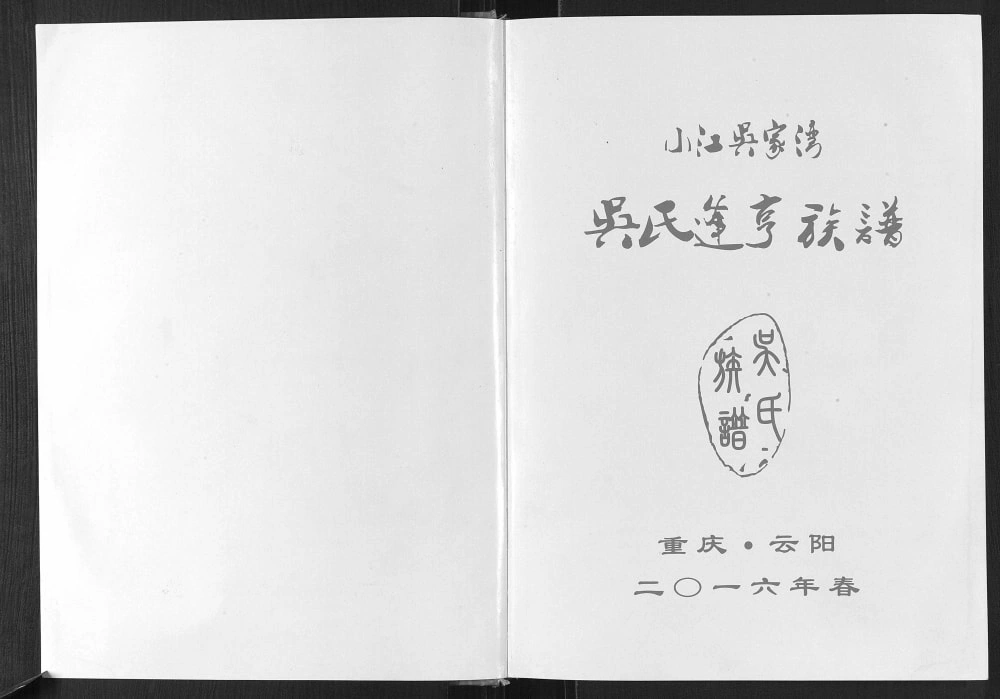 小江吳家湾
吳氏蓬亨族譜
吴氏
族譜
重庆·云阳
二〇一六年春